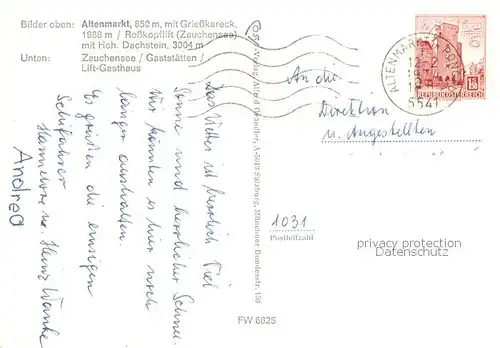 Bilder oben: Altenmarkt, 850 m, mit Grießkareck,
1988 m / Roßkopflift (Zauchensee)
mit Hoh. Dachstein, 3004 m
Unten: Zauchensee / Gaststätten /
Lift-Gasthaus
Das Wetter ist herrlich Viel
Sonne und herrlicher Schnee.
Wir könnten es hier noch
länger aushalten.
Es grüßen die einsigen
Schifahrer
Hannelore u. Heinz Wanke
Andrea
Verlag Alfred Gründler, A-5013 Salzburg, Münchner Bundesstr. 156
FW 6825
ALTENMARKT
5541
REPUBLIK ÖSTERREICH
An die
Direktion
u. Angestellten
1031
Postleitzahl
privacy protection
Datenschutz